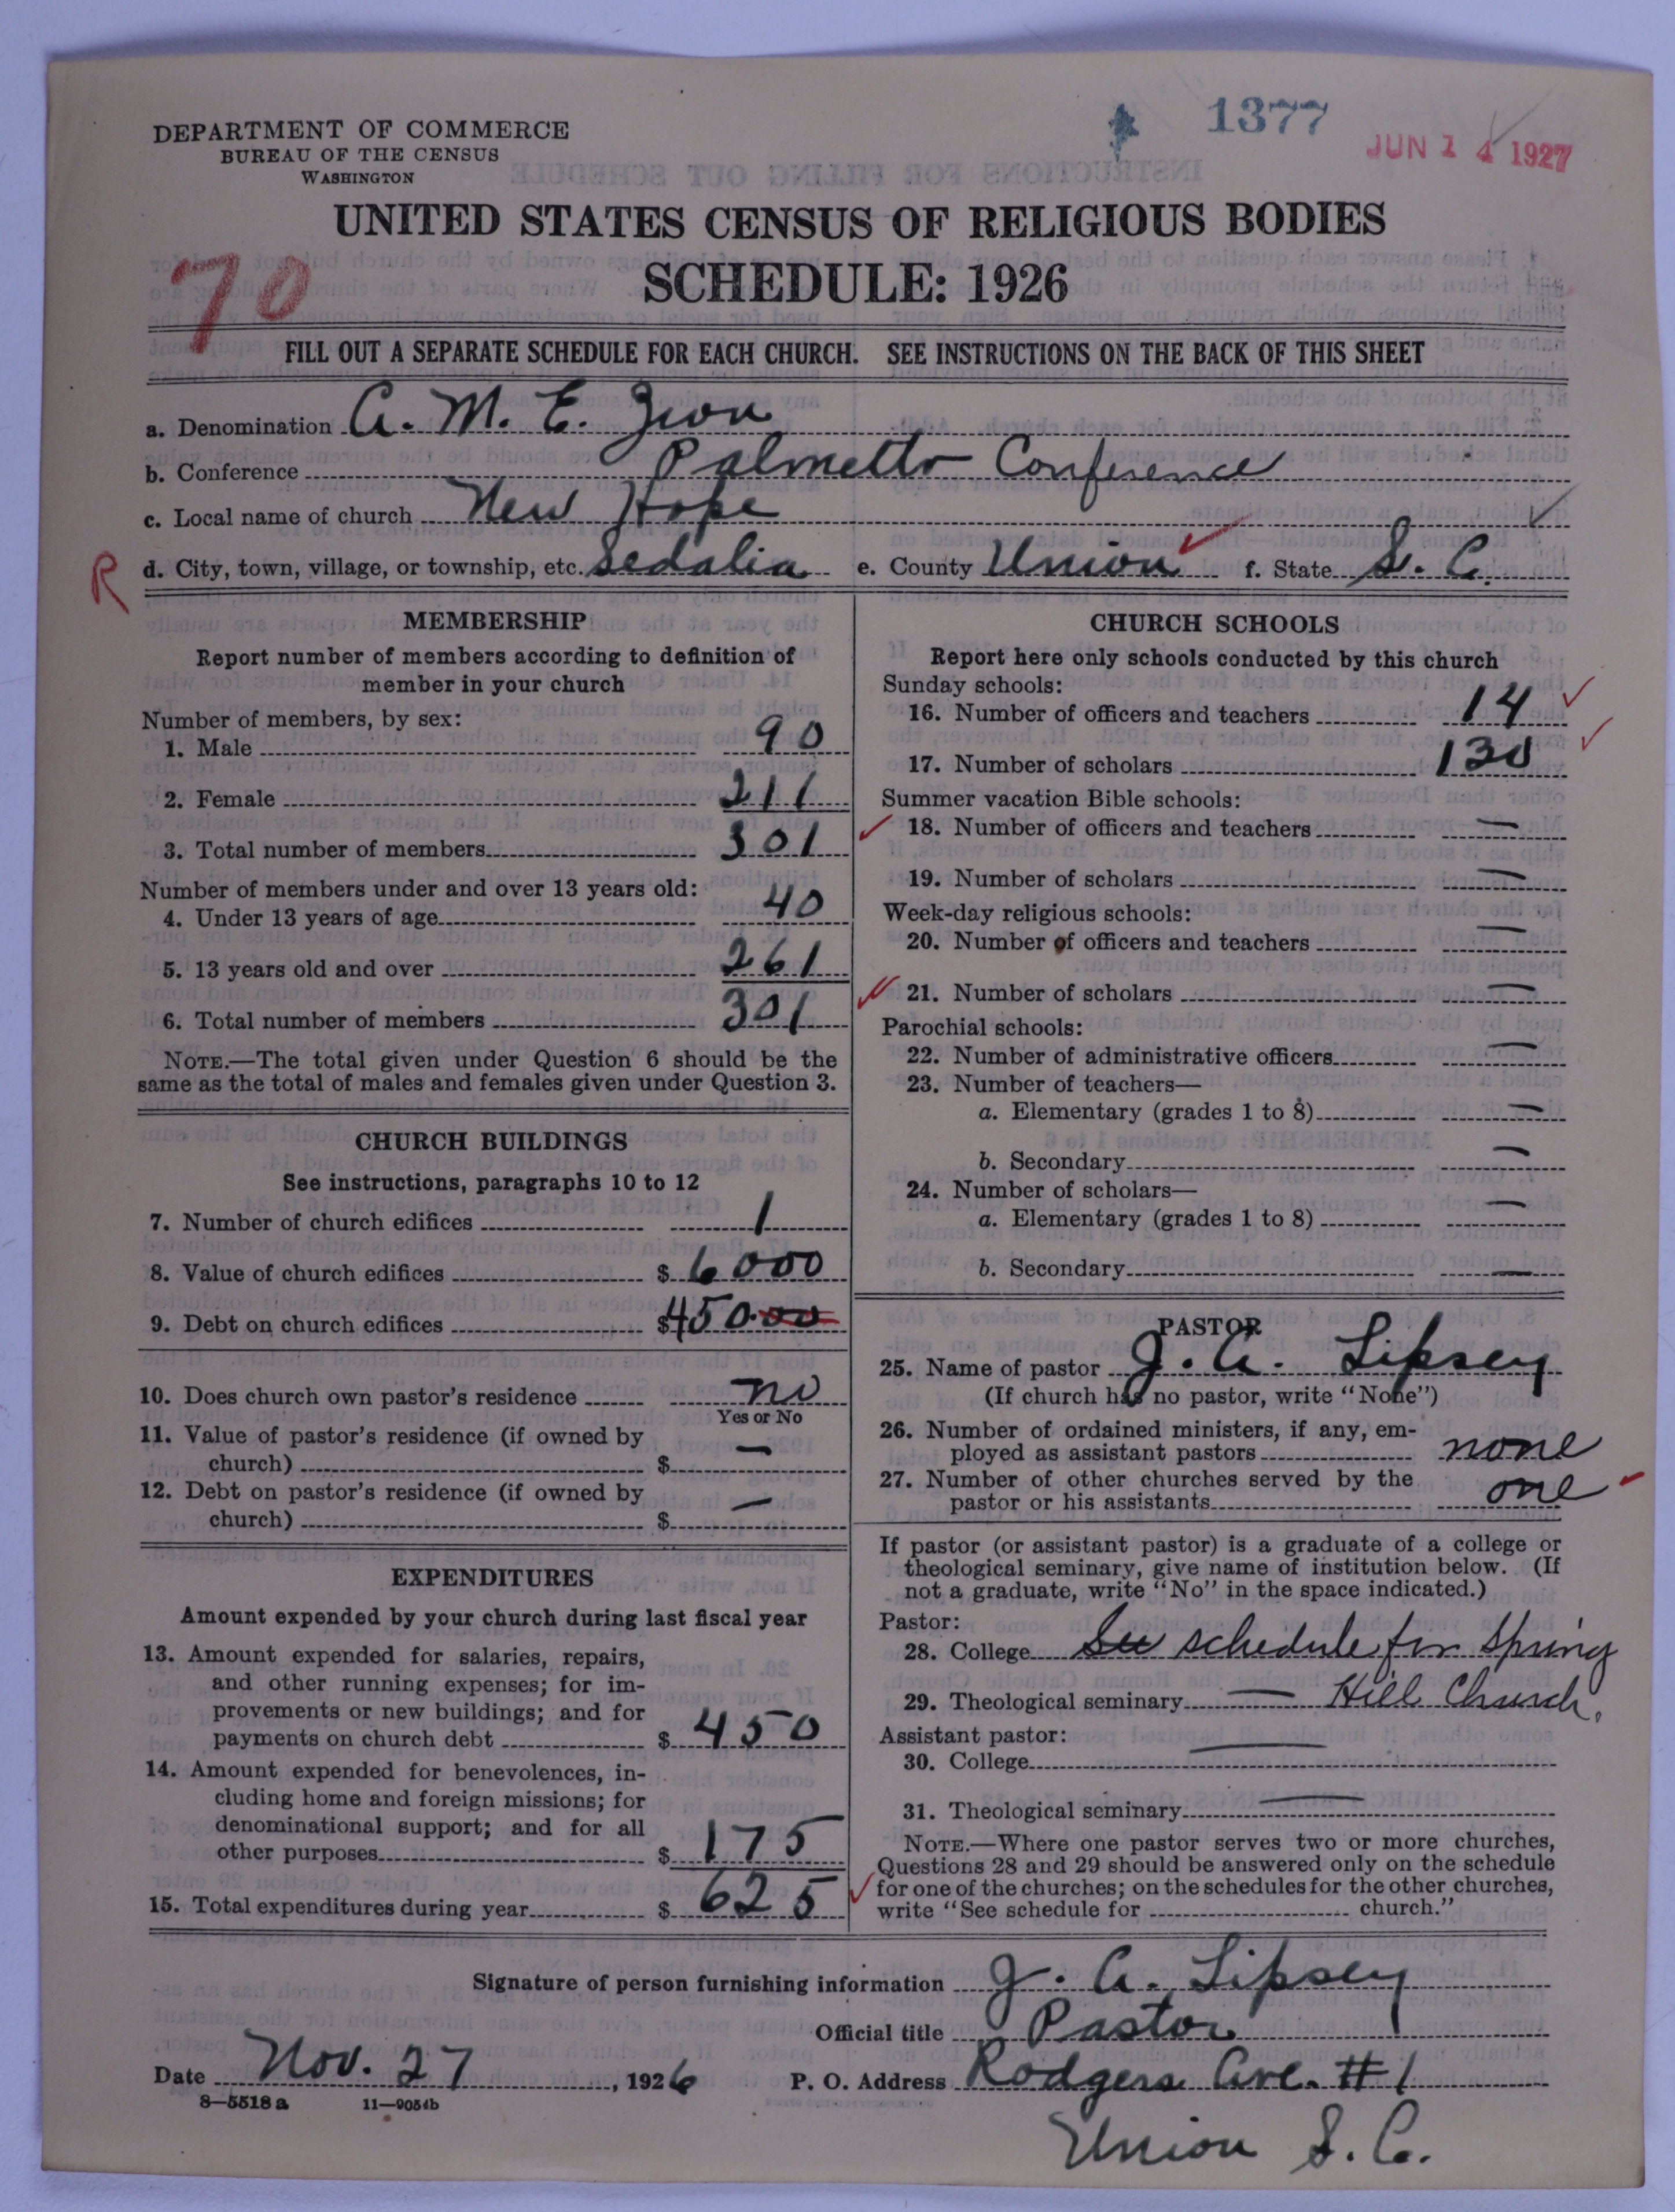 1377
JUN 14 1927
DEPARTMENT OF COMMERCE
BUREAU OF THE CENSUS
WASHINGTON
UNITED STATES CENSUS OF RELIGIOUS BODIES
SCHEDULE: 1926
70
FILL OUT A SEPARATE SCHEDULE FOR EACH CHURCH. SEE INSTRUCTIONS ON THE BACK OF THIS SHEET
a. Denomination A. M. E. Zion
b. Conference Palmetto Conference
c. Local name of church New Hope
R d. City, town, village, or township, etc. Sedalia e. County Union f. State S. C.
MEMBERSHIP
Report number of members according to definition of
member in your church
Number of members, by sex:
1. Male 90
2. Female 211
3. Total number of members 301
Number of members under and over 13 years old:
4. Under 13 years of age 40
5. 13 years old and over 261
6. Total number of members 301
NOTE.—The total given under Question 6 should be the
same as the total of males and females given under Question 3.
CHURCH BUILDINGS
See instructions, paragraphs 10 to 12
7. Number of church edifices 1
8. Value of church edifices $ 6000
9. Debt on church edifices $ 450.00
10. Does church own pastor's residence no
Yes or No
11. Value of pastor's residence (if owned by
church) $ —
12. Debt on pastor's residence (if owned by
church) $ —
EXPENDITURES
Amount expended by your church during last fiscal year
13. Amount expended for salaries, repairs,
and other running expenses; for im-
provements or new buildings; and for
payments on church debt $ 450
14. Amount expended for benevolences, in-
cluding home and foreign missions; for
denominational support; and for all
other purposes $ 175
15. Total expenditures during year $ 625
CHURCH SCHOOLS
Report here only schools conducted by this church
Sunday schools:
16. Number of officers and teachers 14
17. Number of scholars 130
Summer vacation Bible schools:
18. Number of officers and teachers —
19. Number of scholars —
Week-day religious schools:
20. Number of officers and teachers —
21. Number of scholars —
Parochial schools:
22. Number of administrative officers —
23. Number of teachers—
a. Elementary (grades 1 to 8) —
b. Secondary —
24. Number of scholars—
a. Elementary (grades 1 to 8) —
b. Secondary —
PASTOR
25. Name of pastor J. A. Lipsey
(If church has no pastor, write "None")
26. Number of ordained ministers, if any, em-
ployed as assistant pastors none
27. Number of other churches served by the
pastor or his assistants one
If pastor (or assistant pastor) is a graduate of a college or
theological seminary, give name of institution below. (If
not a graduate, write "No" in the space indicated.)
Pastor:
28. College See schedule for Spring
29. Theological seminary — Hill Church.
Assistant pastor:
30. College —
31. Theological seminary —
NOTE.—Where one pastor serves two or more churches,
Questions 28 and 29 should be answered only on the schedule
for one of the churches; on the schedules for the other churches,
write "See schedule for church."
Signature of person furnishing information J. A. Lipsey
Official title Pastor
Date Nov. 27, 1926 P. O. Address Rodgers Ave. #1
8—5518a 11—9054b
Union S. C.